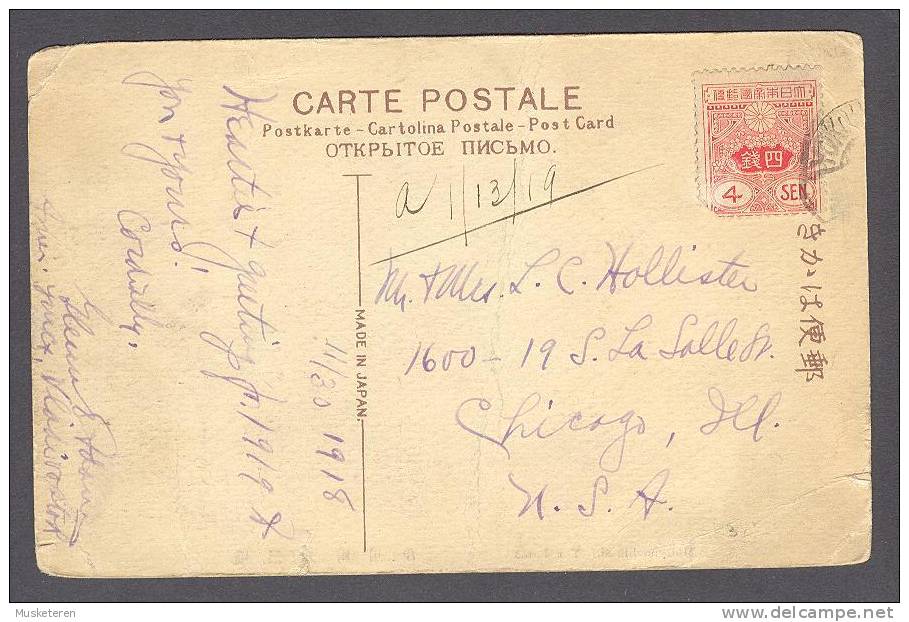 CARTE POSTALE
Postkarte - Cartolina Postale - Post Card
ОТКРЫТОЕ ПИСЬМО.
大日本帝國郵便
四錢
4 SEN
a 1/13/19
きかは便郵
Mr. & Mrs. L. C. Hollister
1600 - 19 S. La Salle St.
Chicago, Ill.
U. S. A.
MADE IN JAPAN.
11/30 1918
Heartiest greetings for 1919 to
you & yours!
Cordially,
Vladivostok
Musketeren
delcampe.net